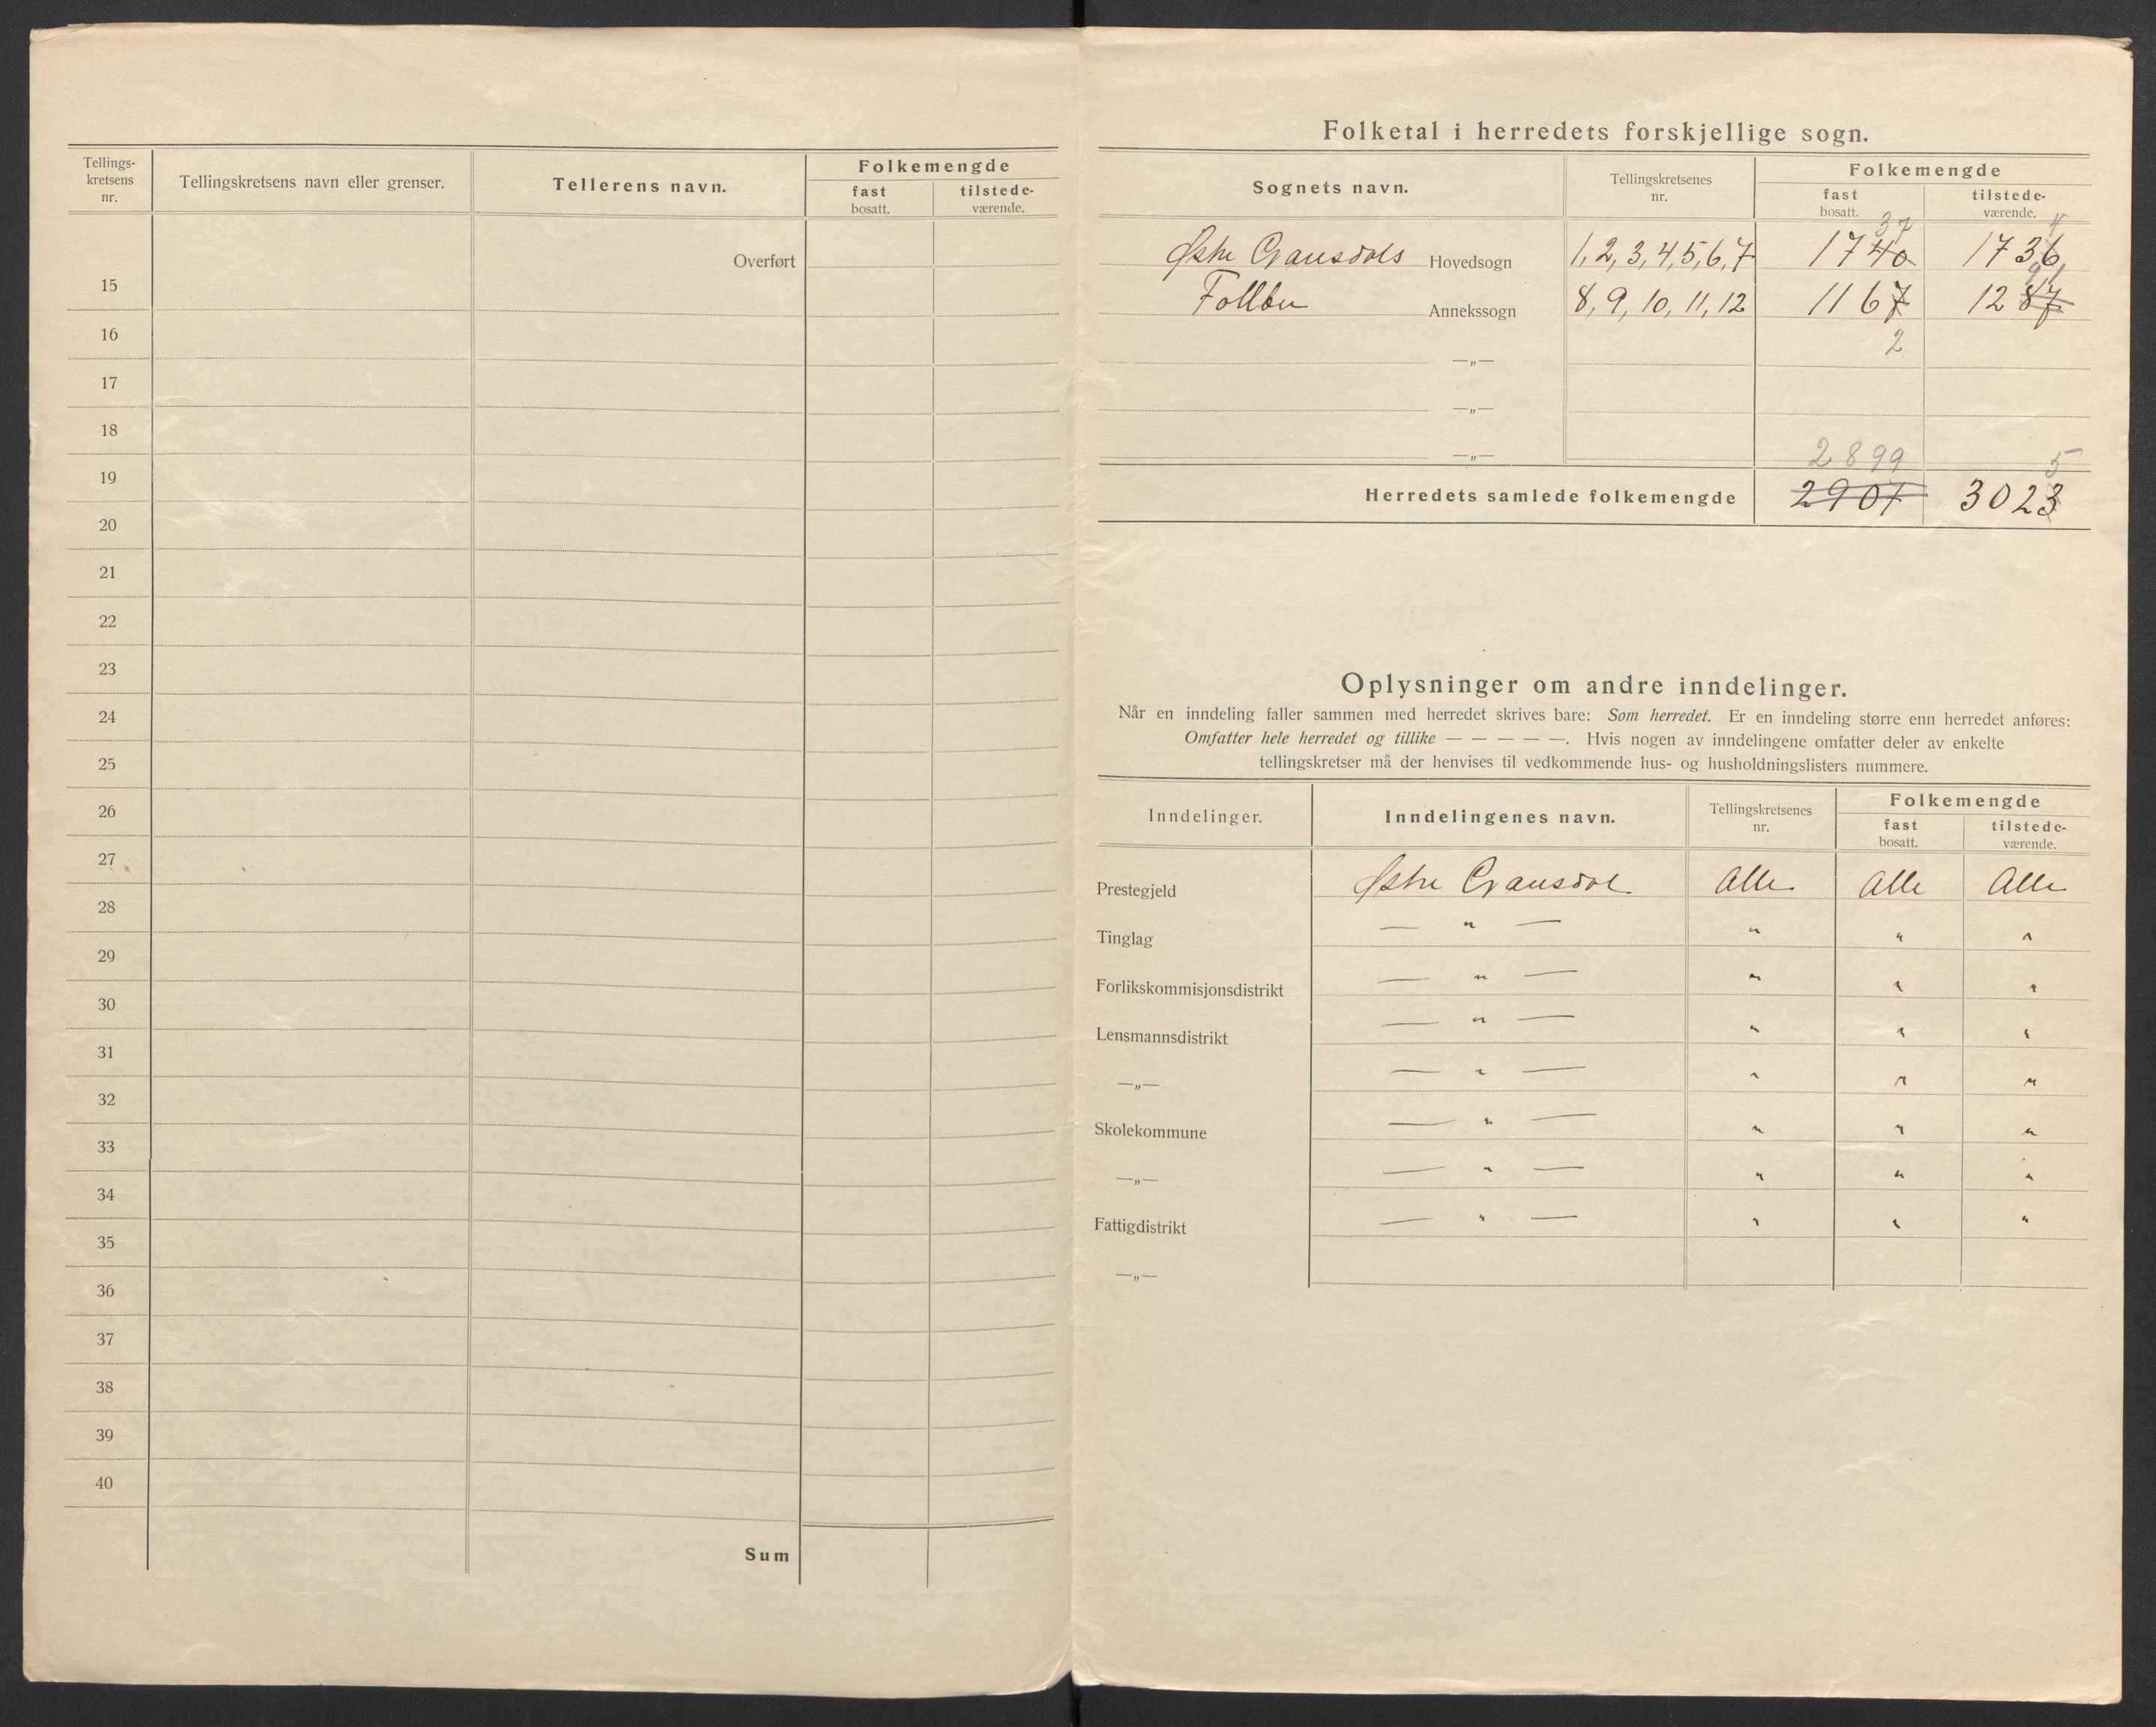 Tellings-
kretsens
nr.
Tellingskretsens navn eller grenser.
Tellerens navn.
Folkemengde
fast
bosatt.
tilstede-
værende.
Overført
15
16
17
18
19
20
21
22
23
24
25
26
27
28
29
30
31
32
33
34
35
36
37
38
39
40
Sum
Folketal i herredets forskjellige sogn.
Sognets navn.
Tellingskretsenes
nr.
Folkemengde
fast
bosatt.
tilstede-
værende.
37 4
Østre Gausdals Hovedsogn 1,2,3,4,5,6,7 1740 1736
91
Follebu Annekssogn 8, 9, 10, 11, 12 1167 1287
—„— 2
—„—
—„— 2899 5
Herredets samlede folkemengde 2907 3023
Oplysninger om andre inndelinger.
Når en inndeling faller sammen med herredet skrives bare: Som herredet. Er en inndeling større enn herredet anføres:
Omfatter hele herredet og tillike — — — — —. Hvis nogen av inndelingene omfatter deler av enkelte
tellingskretser må der henvises til vedkommende hus- og husholdningslisters nummere.
Inndelinger.
Inndelingenes navn.
Tellingskretsenes
nr.
Folkemengde
fast
bosatt.
tilstede-
værende.
Prestegjeld Østre Gausdal Alle Alle Alle
Tinglag — " — " " "
Forlikskommisjonsdistrikt — " — " " "
Lensmannsdistrikt — " — " " "
—„— — " — " " "
Skolekommune — " — " " "
—„— — " — " " "
Fattigdistrikt — " — " " "
—„—